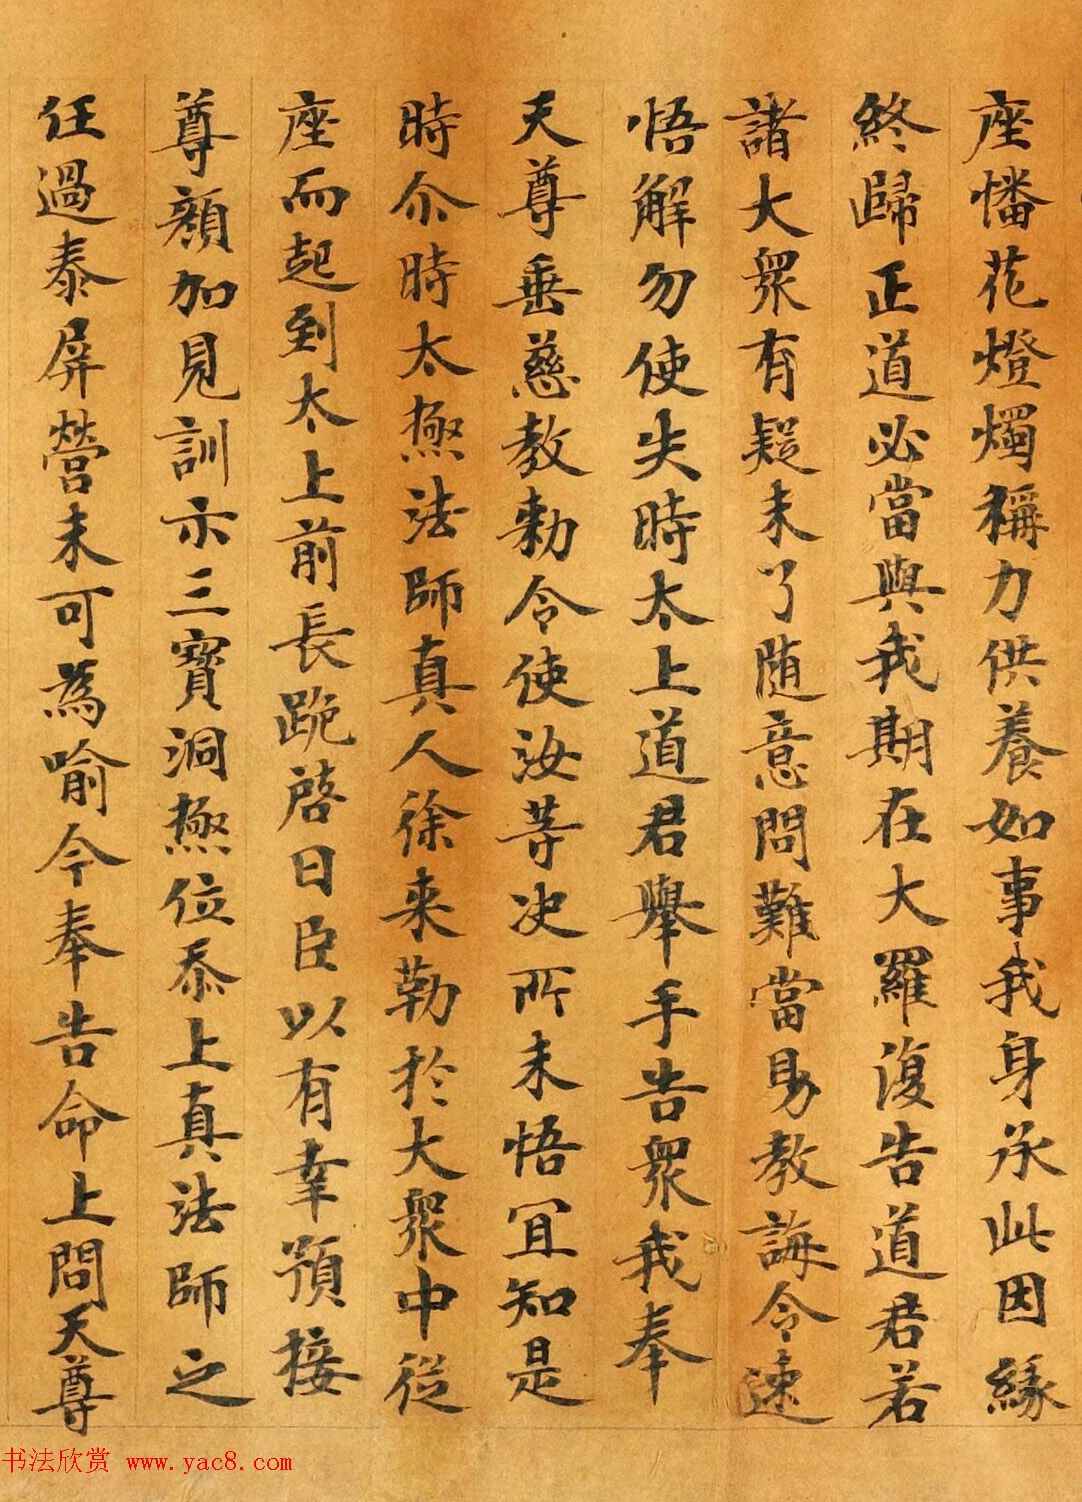 座幡花燈燭稱力供養如事我身承此因緣
終歸正道必當與我期在大羅復告道君若
諸大衆有疑未了随意問難當易教誨令速
悟解勿使失時太上道君舉手告衆我奉
天尊垂慈教勑令使汝等决所未悟冝知是
時尒時太極法師真人徐来勒於大衆中從
座而起到太上前長跪啓曰臣以有幸預接
尊顔加見訓示三寶洞極位忝上真法師之
任過泰屏營未可為喻今奉告命上問天尊
书法欣赏 www.yac8.com